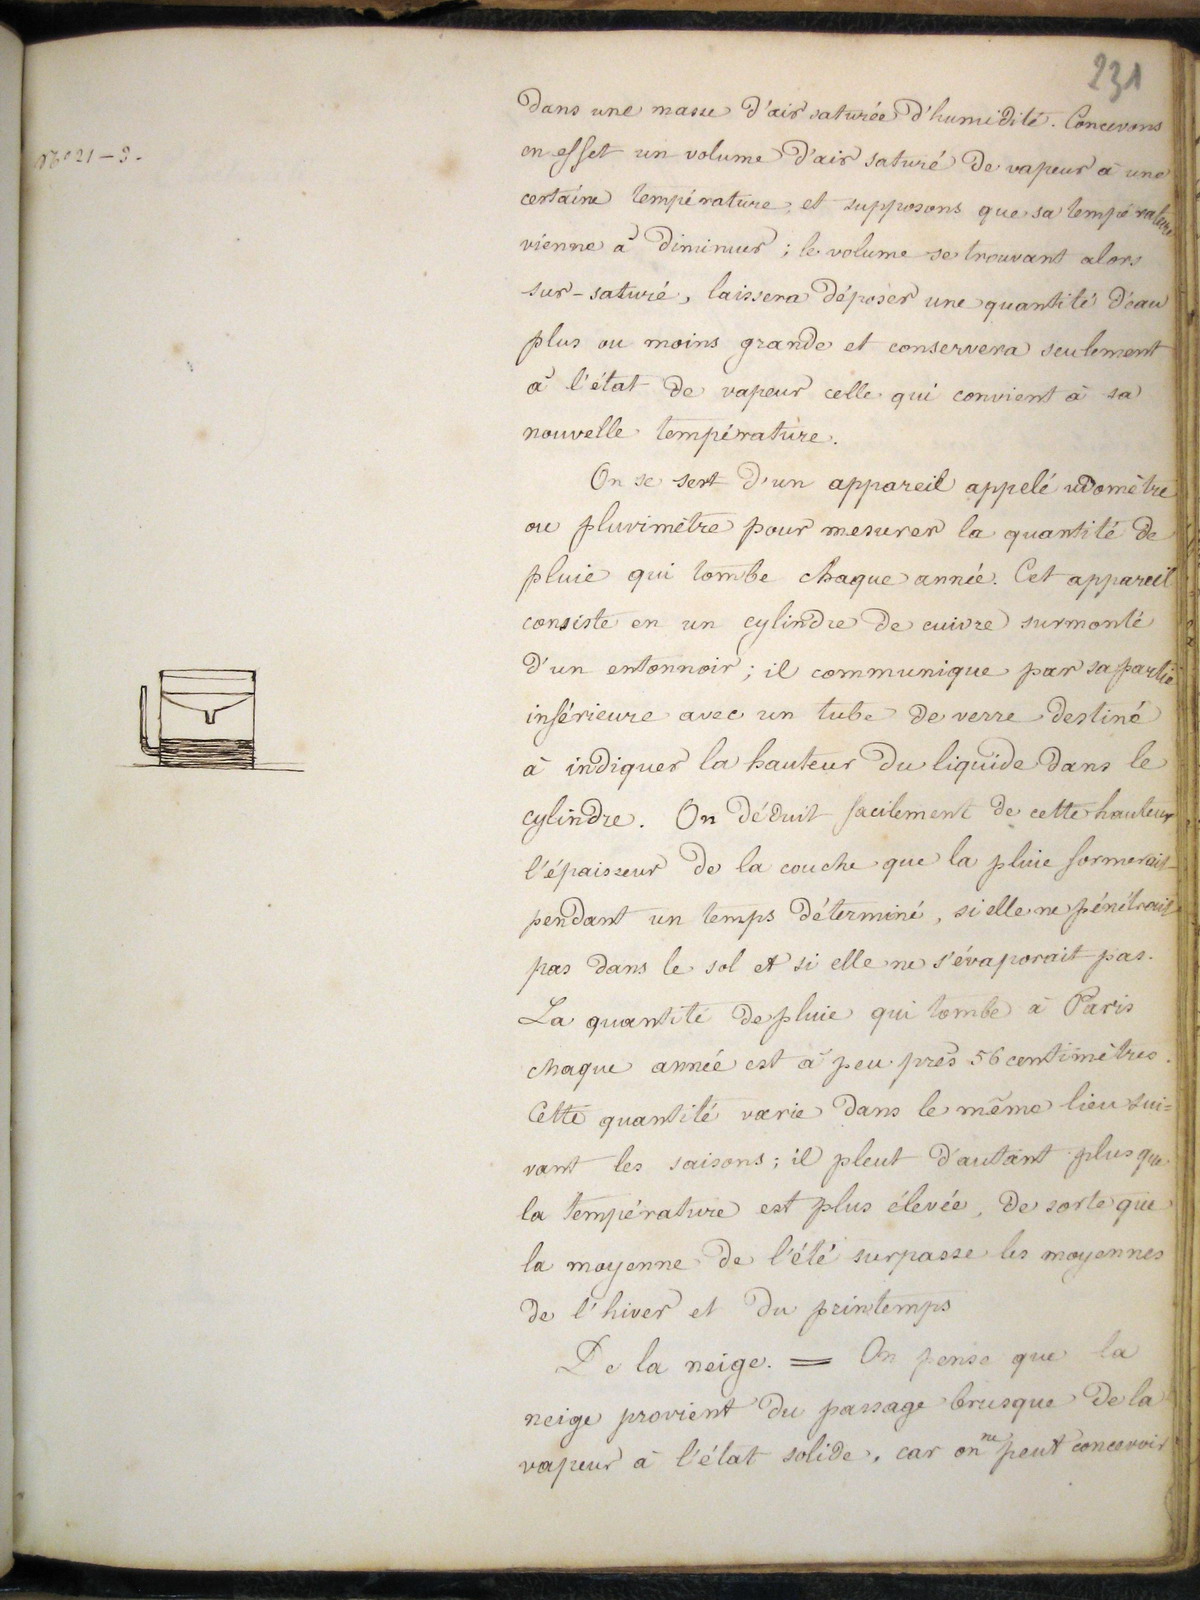 231
N° 21 - 3.
dans une masse d'air saturée d'humidité. Concevons
en effet un volume d'air saturé de vapeur à une
certaine température, et supposons que sa température
vienne à diminuer ; le volume se trouvant alors
sur-saturé, laissera déposer une quantité d'eau
plus ou moins grande et conservera seulement
à l'état de vapeur celle qui convient à sa
nouvelle température.
On se sert d'un appareil appelé udomètre
ou pluvimètre pour mesurer la quantité de
pluie qui tombe chaque année. Cet appareil
consiste en un cylindre de cuivre surmonté
d'un entonnoir ; il communique par sa partie
inférieure avec un tube de verre destiné
à indiquer la hauteur du liquide dans le
cylindre. On déduit facilement de cette hauteur
l'épaisseur de la couche que la pluie formerait
pendant un temps déterminé, si elle ne pénétrait
pas dans le sol et si elle ne s'évaporait pas.
La quantité de pluie qui tombe à Paris
chaque année est à peu près 56 centimètres.
Cette quantité varie dans le même lieu sui=
vant les saisons ; il pleut d'autant plus que
la température est plus élevée, de sorte que
la moyenne de l'été surpasse les moyennes
de l'hiver et du printemps
De la neige. = On pense que la
neige provient du passage brusque de la
vapeur à l'état solide, car on ne peut concevoir